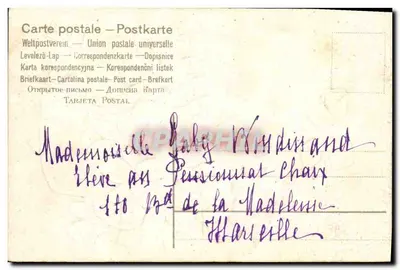 Carte postale – Postkarte
Weltpostverein — Union postale universelle
Levelező-Lap — Correspondenzkarte — Dopisnice
Karta korespondencyjna — Korespondenční listek
Briefkaart - Cartolina postale - Post card - Brefkort
Открытое письмо — Дописна Карта
TARJETA POSTAL
Mademoiselle Gaby
Elève au Pensionnat Chaix
170 Bd de la Madeleine
Marseille